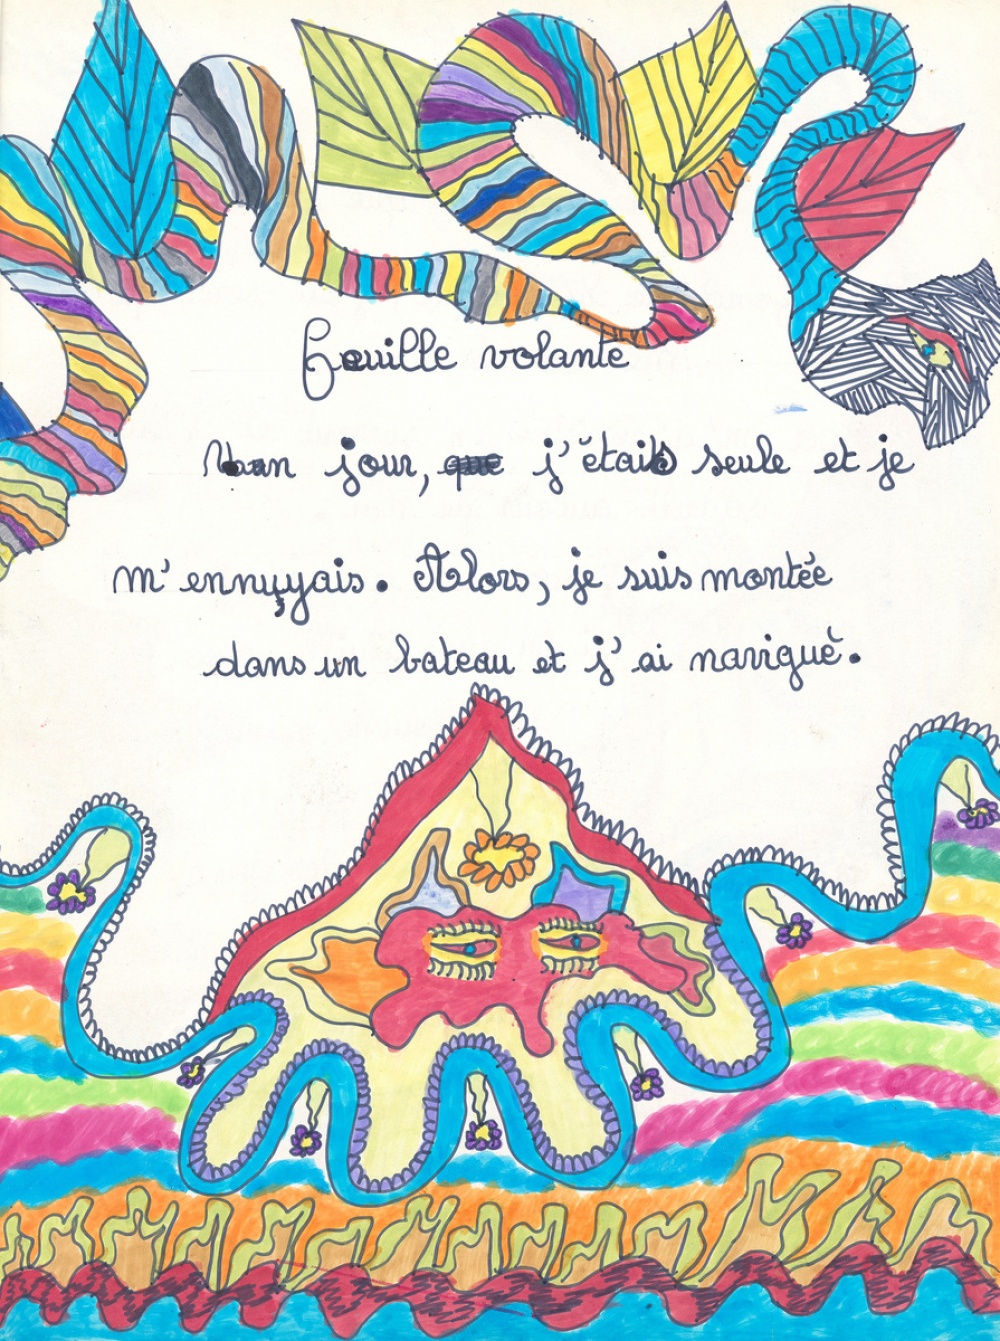 Feuille volante
Un jour, que j'étais seule et je
m'ennuyais. Alors, je suis montée
dans un bateau et j'ai navigué.